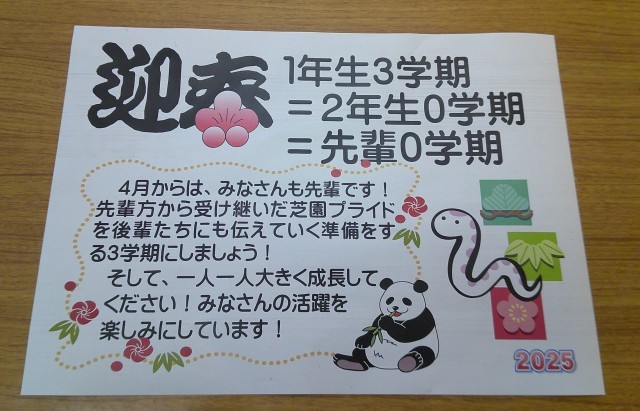 迎春
1年生3学期
＝2年生0学期
＝先輩0学期
4月からは、みなさんも先輩です！
先輩方から受け継いだ芝園プライド
を後輩たちにも伝えていく準備をす
る3学期にしましょう！
そして、一人一人大きく成長して
ください！みなさんの活躍を
楽しみにしています！
2025